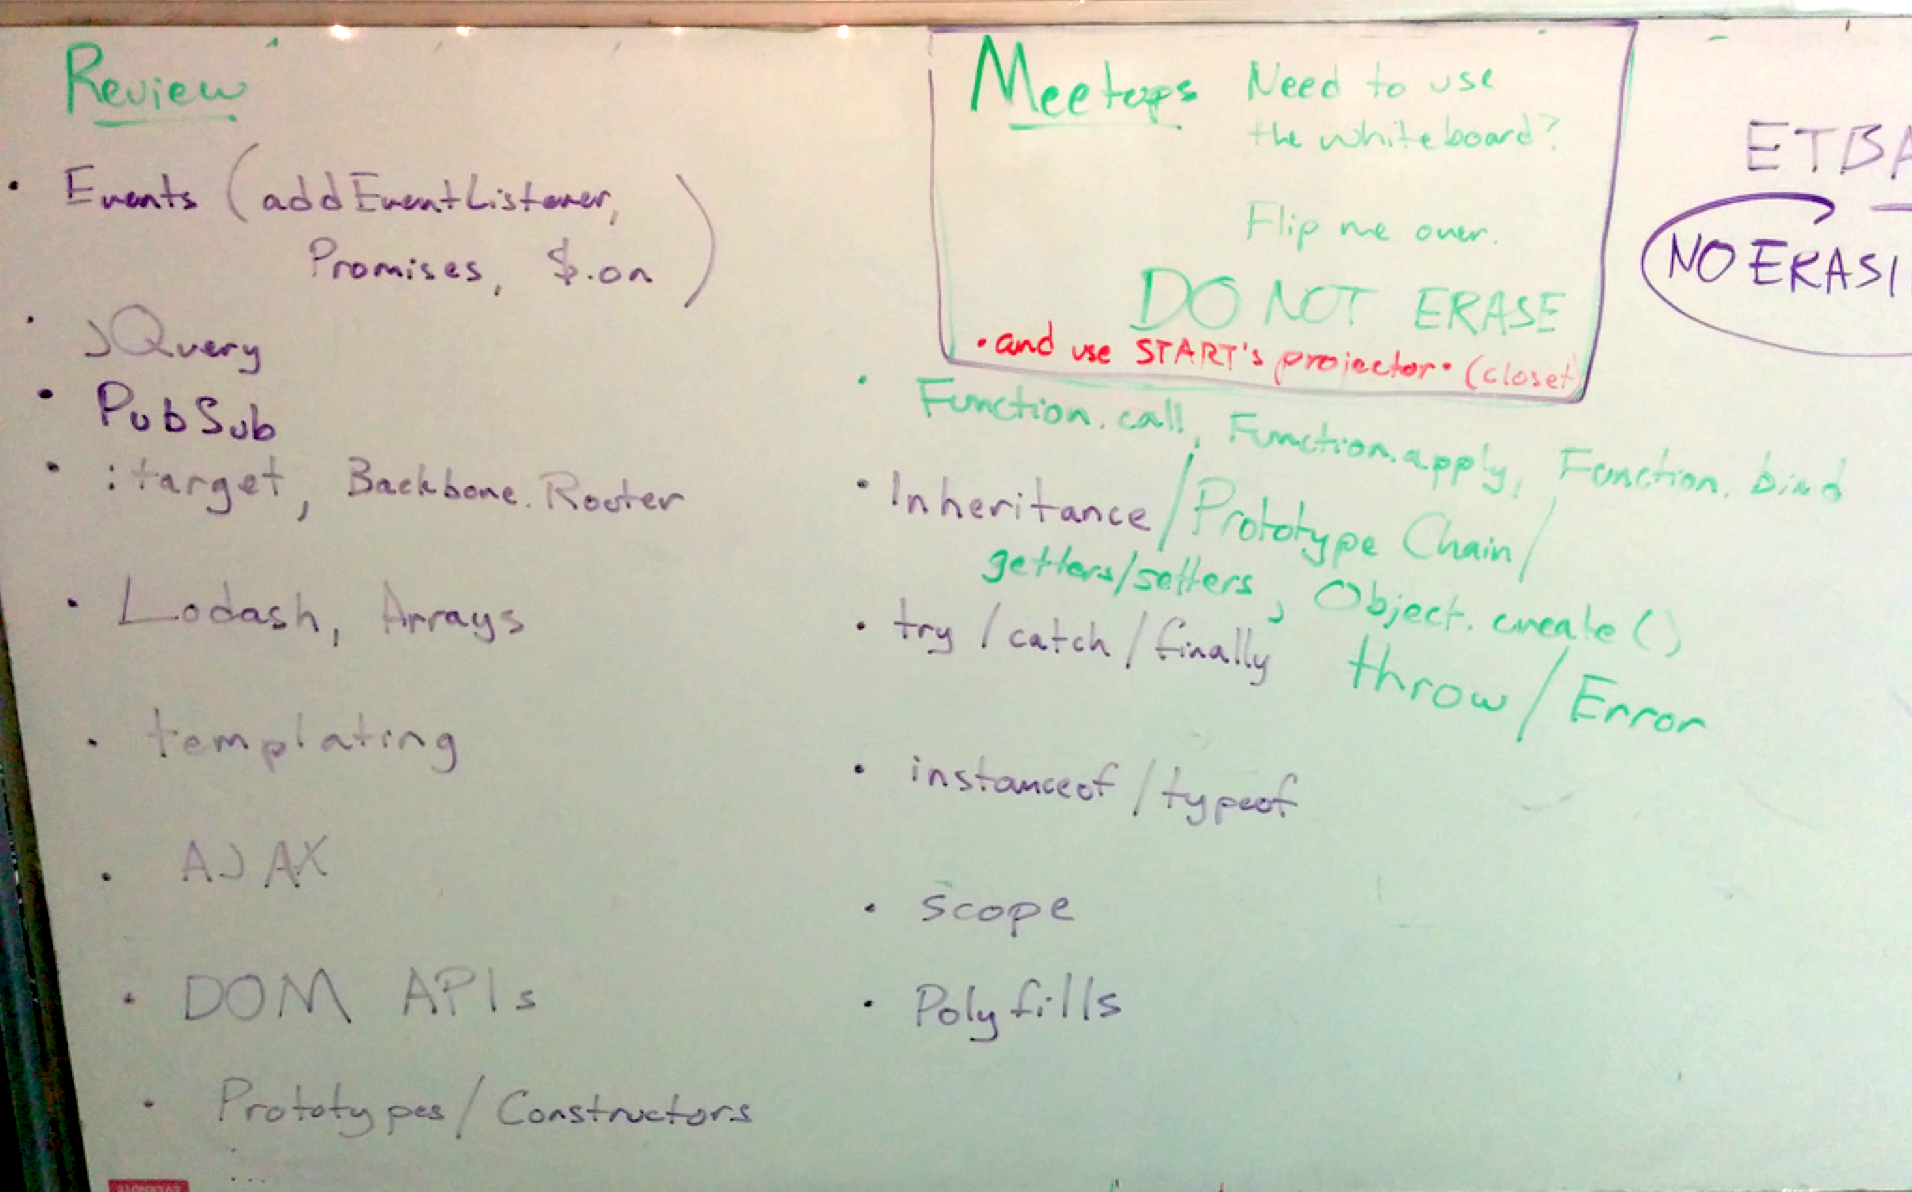 Review
• Events (addEventListener,
Promises, $.on)
• jQuery
• PubSub
• :target, Backbone.Router
• Lodash, Arrays
• templating
• AJAX
• DOM APIs
• Prototypes/Constructors
Meetups
Need to use
the whiteboard?
Flip me over.
DO NOT ERASE
•and use START's projector• (closet)
• Function.call, Function.apply, Function.bind
• Inheritance/Prototype Chain/
getters/setters, Object.create()
• try/catch/finally throw/Error
• instanceof/typeof
• scope
• Polyfills
ETBA
NO ERASI